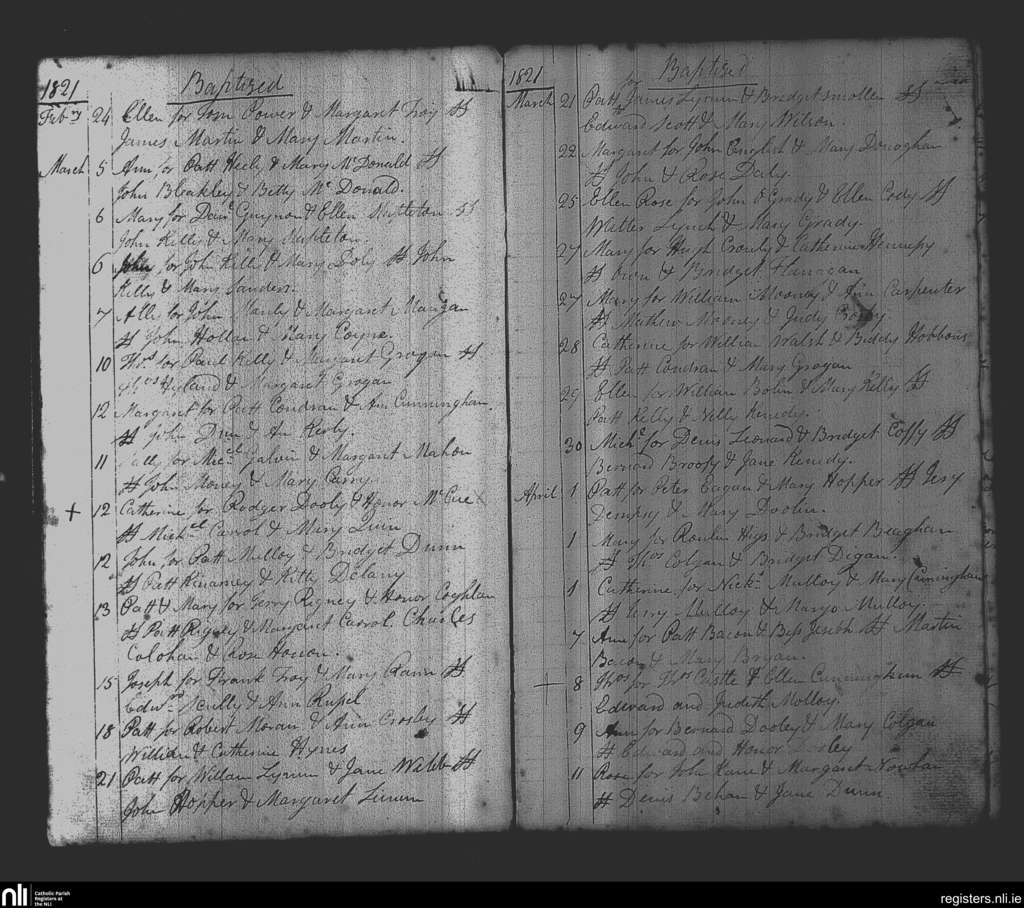 1821 Baptized
Feb.ry 24 Ellen for Tom Power & Margaret Troy #
James Martin & Mary Martin.
March 5 Ann for Patt Heely & Mary Mc Donald #
John Bleakley & Betty Mc Donald.
6 Mary for & Ellen #
John Kelly & Mary
6 John for John Kelly & Mary Doly # John
Kelly & Mary Sanders.
7 for John & Margaret Mangan
# John Hollan & Mary Coyne.
10 Tho.s for Paul Kelly & Margaret Grogan #
Hyland & Margaret Grogan
12 Margaret for Patt Condran & Ann Cunningham.
# John Dunn & An
11 for Mic.el Galvin & Margaret Mahon
# John Money & Mary
+ 12 Catherine for Rodger Dooly & Honor Mc Cue
# Mich.el Carrol & Mary Quin
12 John for Patt Mulloy & Bridget Dunn
# Patt & Kitty Delany
13 Patt & Mary for Jerry Rigney & Honor Coghlan
# Patt Rigney & Margaret Carrol Charles
Colohan & Rose
15 Joseph for Frank Troy & Mary #
Edw.rd & Ann
18 Patt for Robert Moran & Ann Crosley #
William & Catherine Hynes
21 Patt for William & Jane Webb #
John Hopper & Margaret
1821 Baptized
March 21 Patt for James & Bridget Smollen #
Edward Scott & Mary Wilson.
22 Margaret for John English & Mary Donaghan
# John & Rose Daly.
25 Ellen Rose for John O Grady & Ellen Cody #
Walter Lynch & Mary Grady.
27 Mary for Hugh & Catherine
# Owen & Bridget Flanagan
27 Mary for William Mooney & Ann Carpenter
# Mathew Mooney & Judy
28 Catherine for William Walsh & Biddy
# Patt Condran & Mary Grogan
29 Ellen for William & Mary Kelly #
Patt Kelly & Nelly Kenedy.
30 Mich.l for Denis Leonard & Bridget Coffy #
Bernard & Jane Kenedy.
April 1 Patt for Peter Eagan & Mary Hopper # Jery
Dempsy & Mary Doolin.
1 Mary for & Bridget
# Tho.s Colgan & Bridget Digan.
1 Catherine for Nick.s Mulloy & Mary Cunningham
# Jerry Mulloy & Mulloy
7 Ann for Patt Bacon & # Martin
Bacon & Mary Bryan.
+ 8 Tho.s for Tho.s Castle & Ellen Cunningham #
Edward and Judith Molloy.
9 Ann for Bernard Dooley & Mary Colgan
# Edward and Honor Dooley
11 Rose for John Kane & Margaret
# Denis Behan & Jane Dunn
nli Catholic Parish
Registers at
the NLI
registers.nli.ie